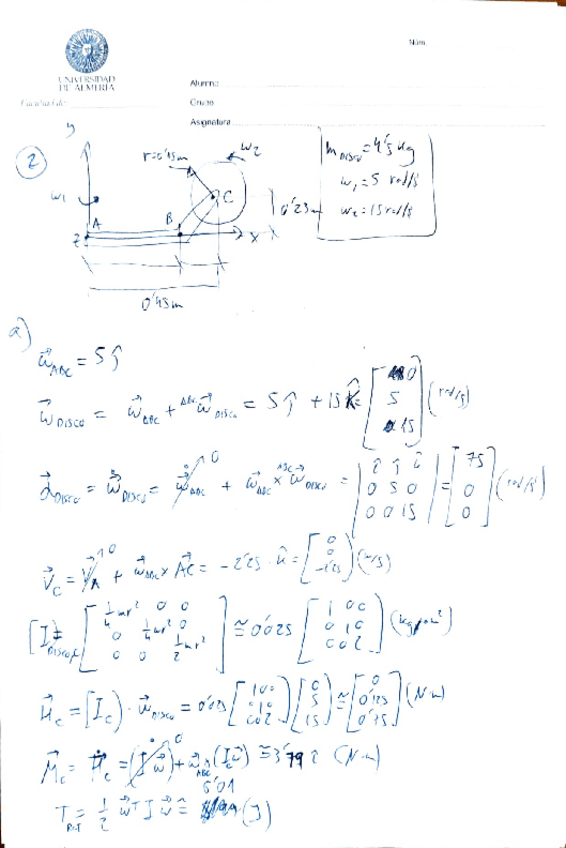 Núm.
UNIVERSIDAD
DE ALMERÍA
Alumno
Grupo
Asignatura
2
y
r=0'15m
w2
w1
A
B
C
0'25m
X
Z
0'45m
m DISCO = 4'5 kg
w1 = 5 rad/s
w2 = 15 rad/s
a)
w⃗ABC = 5 ĵ
w⃗DISCO = w⃗ABC + ABC w⃗DISCO = 5 ĵ + 15 k̂ = [0 5 15] (rad/s)
α⃗DISCO = w⃗DISCO = w⃗ABC 0 + w⃗ABC × ABC w⃗DISCO = | î ĵ k̂ 0 5 0 0 0 15 | = [75 0 0] (rad/s²)
V⃗C = V⃗A 0 + w⃗ABC × AC⃗ = -2'25 · k̂ = [0 0 -2'25] (m/s)
[I]DISCO,C = [1/4 mr² 0 0 0 1/4 mr² 0 0 0 1/2 mr²] ≅ 0'025 [1 0 0 0 1 0 0 0 2] (kg·m²)
H⃗C = [IC] · w⃗DISCO = 0'025 [1 0 0 0 1 0 0 0 2] [0 5 15] ≅ [0 0'125 0'75] (N·m)
M⃗C = H⃗C = (I w⃗) 0 + w⃗ABC ∧ (IC w⃗) ≅ 3'79 î (N·m)
6'01
T ROT = 1/2 w⃗ᵀ I w⃗ ≅ (J)